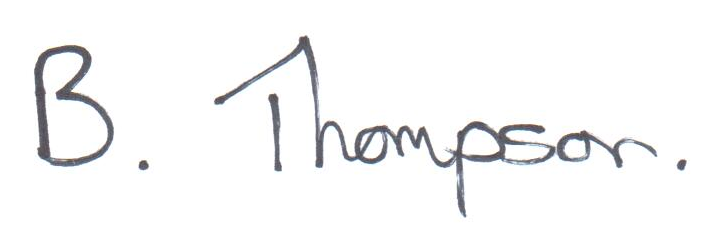 B. Thompson.